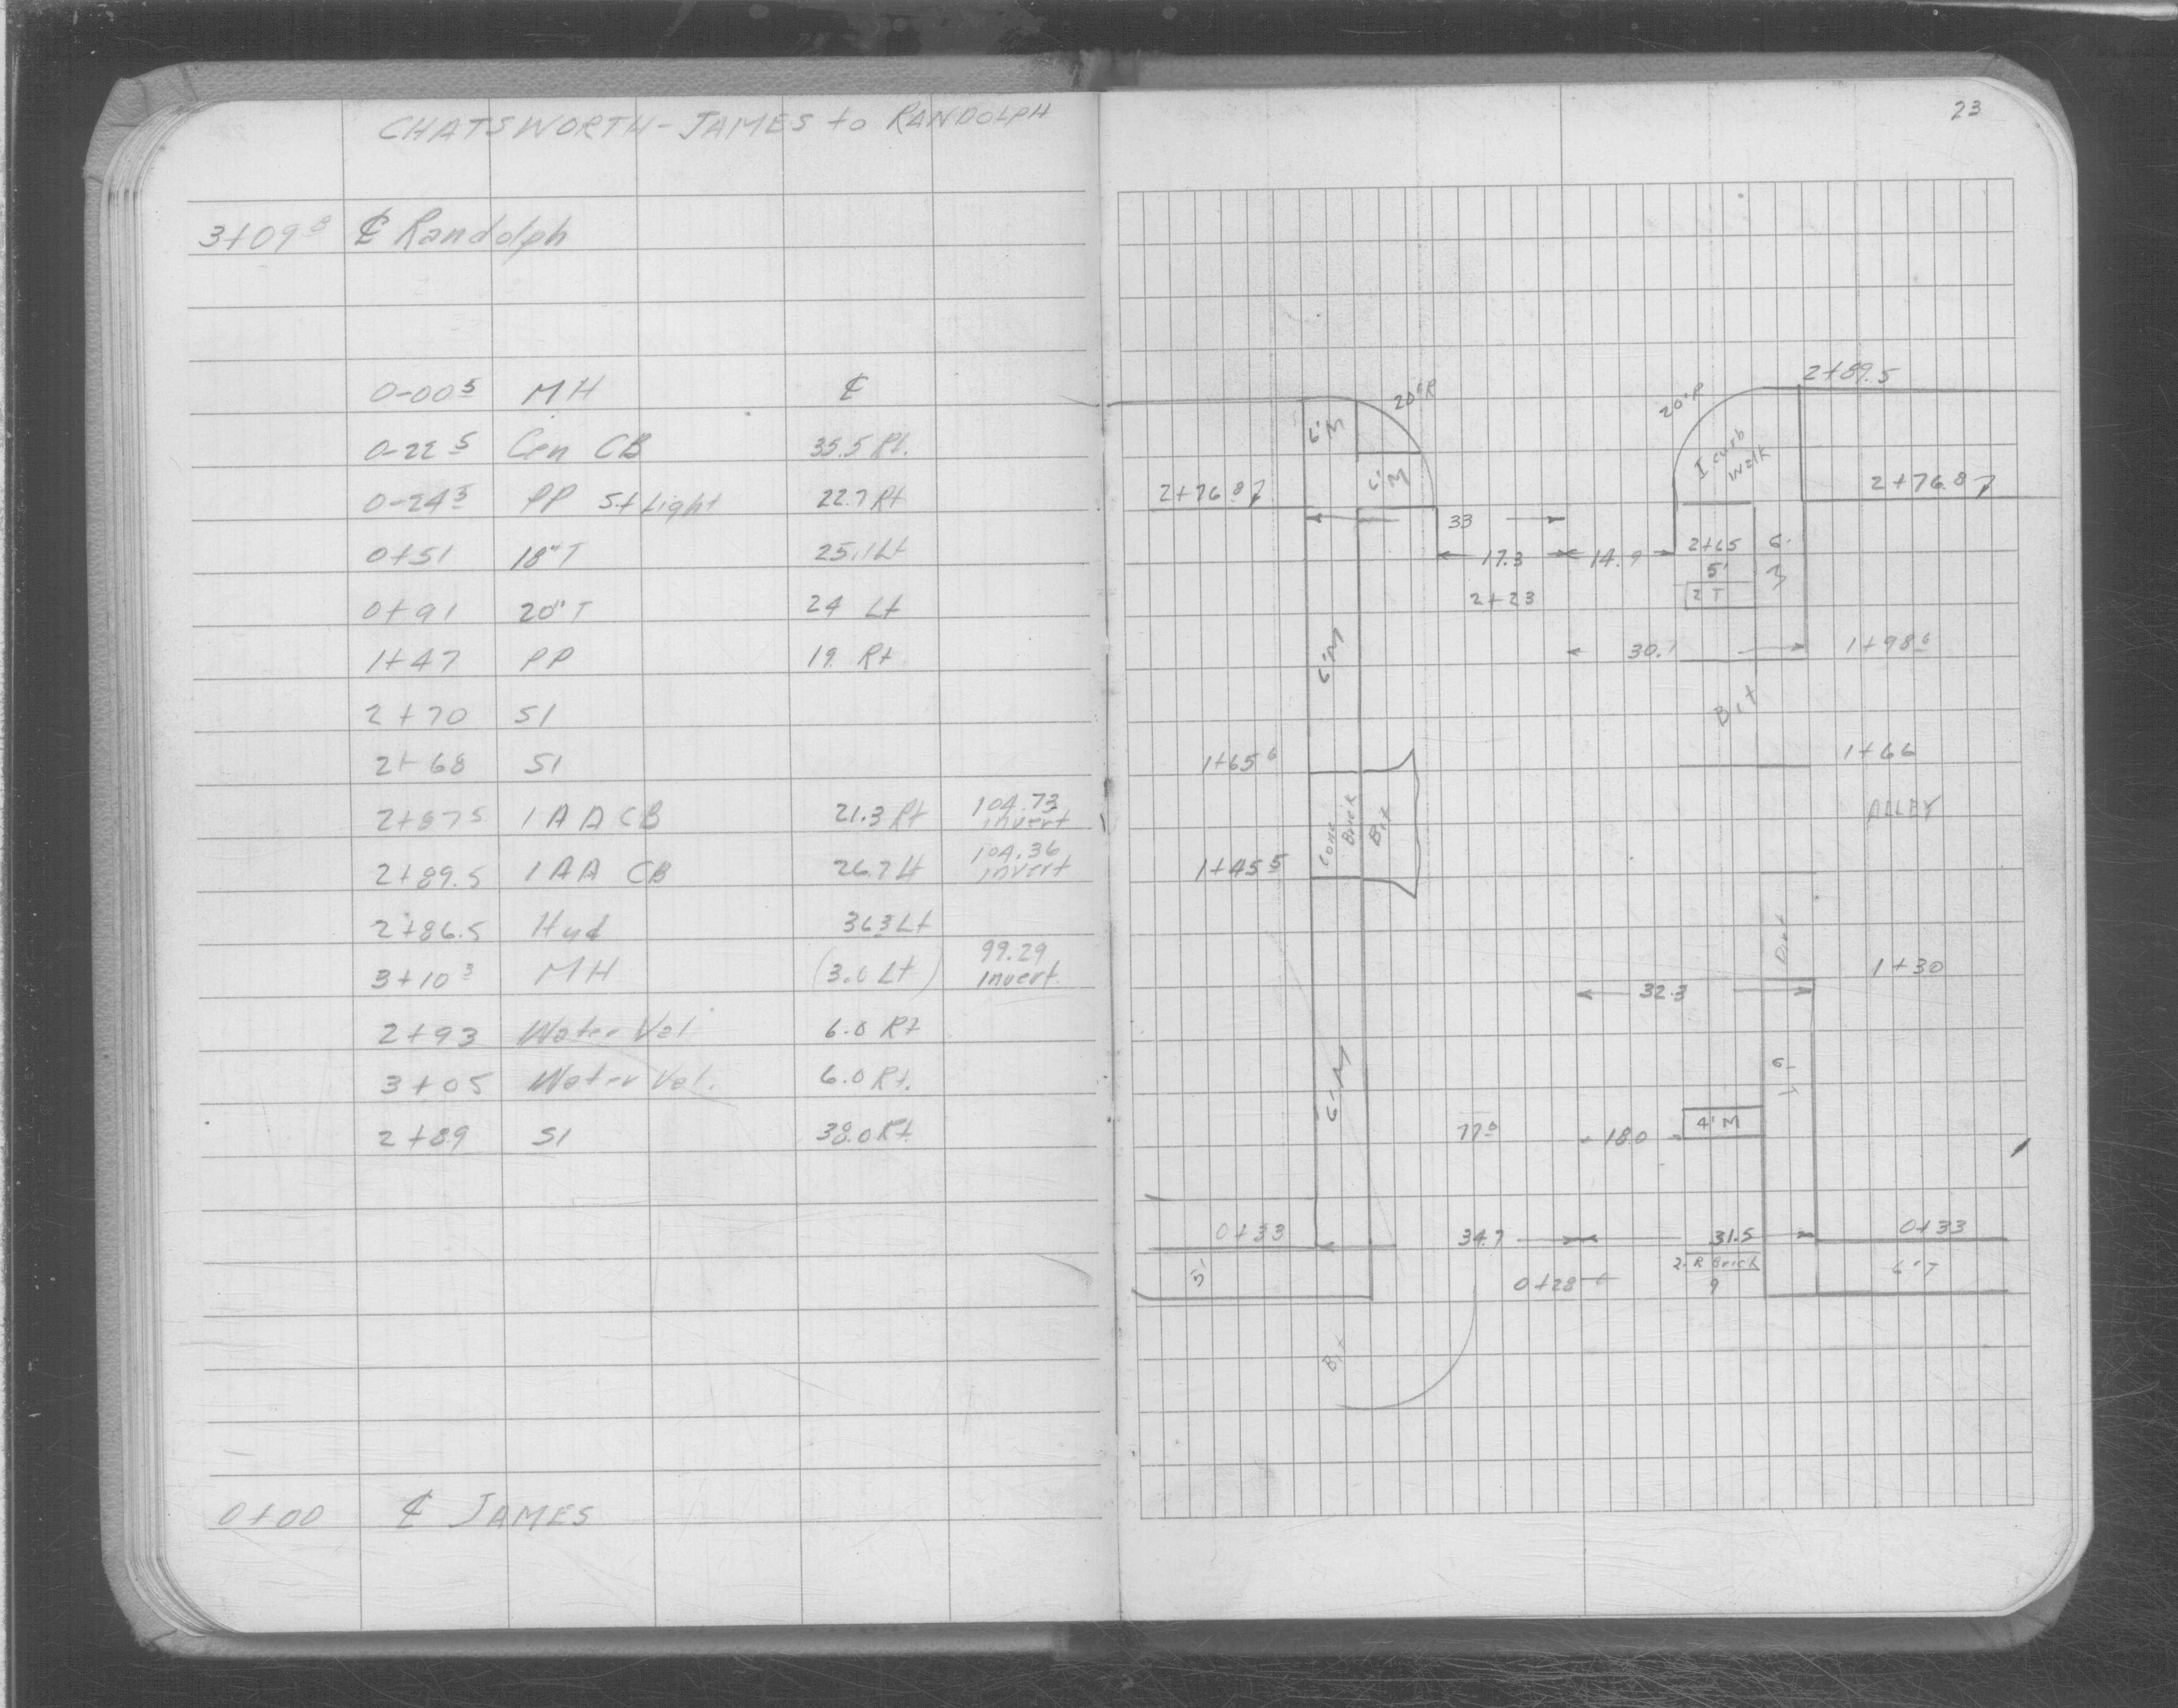 CHATSWORTH - JAMES to RANDOLPH
3+09⁸ ℄ Randolph
0-00⁵ MH ℄
0-22⁵ Cen CB 35.5 Rt.
0-24⁵ PP St Light 22.7 Rt
0+51 18"T 25.1 Lt
0+91 20"T 24 Lt
1+47 PP 19. Rt
2+70 SI
2+68 SI
2+87⁵ 1 AA CB 21.3 Rt 104.73 invert
2+89.5 1 AA CB 26.7 Lt 104.36 invert
2+86.5 Hyd 36.3 Lt
3+10³ MH (3.0 Lt) 99.29 invert.
2+93 Water Val 6.0 Rt
3+05 Water Val. 6.0 Rt.
2+89 SI 38.0 Rt
0+00 ℄ JAMES
23
2+89.5
20'R 20'R
6'M
I curb walk
6'M
2+76.87 2+76.87
33
17.3 14.9 2+65 6'
5'
2+23 2 T
30.1 1+98⁶
6'M
Bit
1+65⁶ 1+66
ALLEY
Conc Brick Bit
1+45⁵
Dirt
1+30
32.3
6'M
6'T
4'M
18.0
0+33 34.7 31.5 0+33
2 R Brick
5' 6'T
0+28 9
Bit